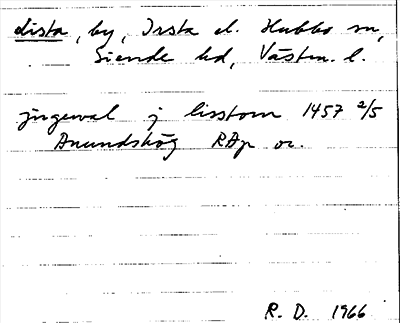 dista, by, Irsta el. Hubbo sn,
Siende hd, Västm. l.
jngeual j lisstom 1457 2/5
Anundshög RAp or.
R. D. 1966